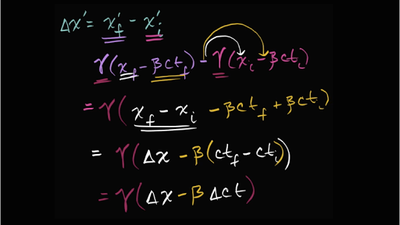 Δx′ = x′_f − x′_i
γ(x_f − βct_f) − γ(x_i − βct_i)
= γ(x_f − x_i − βct_f + βct_i)
= γ(Δx − β(ct_f − ct_i))
= γ(Δx − βΔct)